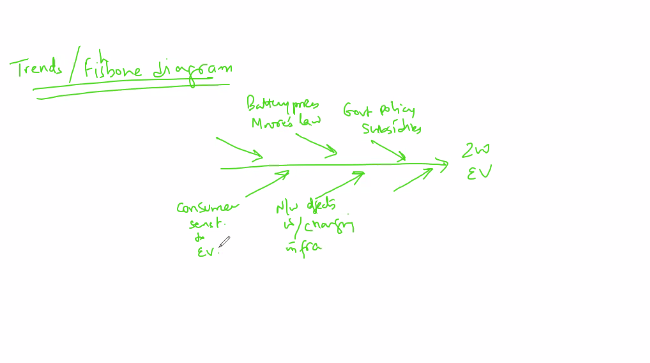 Trends / Fishbone diagram
Battery
Moore's law
Govt policy
Subsidies
2W
EV
Consumer
to
EV.
N/w effects
infra